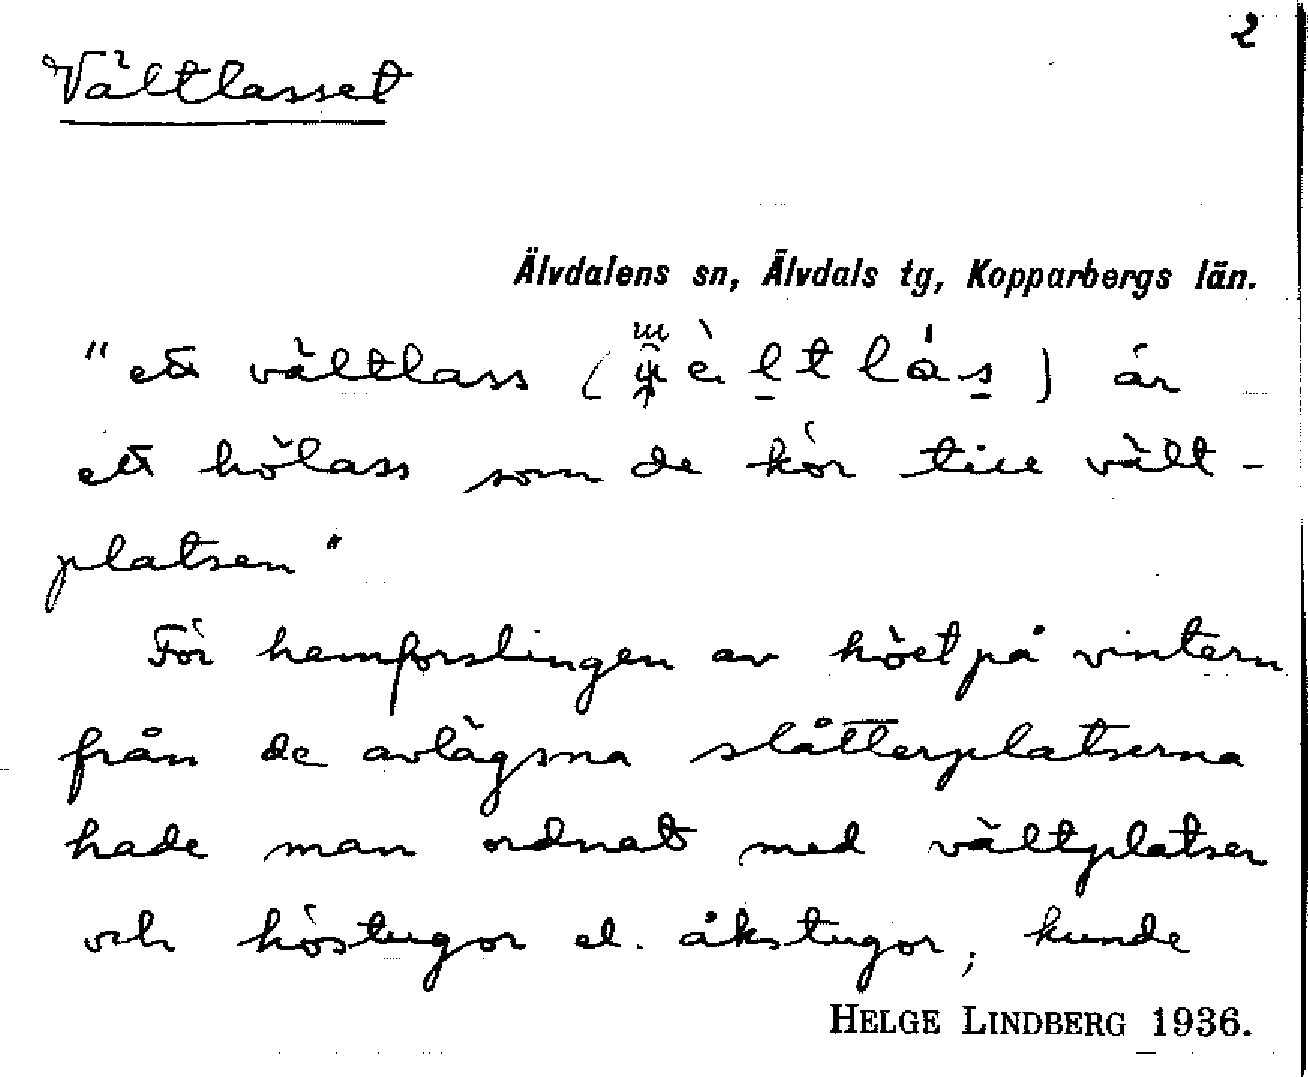 2
Vältlasset
Älvdalens sn, Älvdals tg, Kopparbergs län.
"ett vältlass ( ) är
ett hölass som de kör till vält-
platsen"
För hemforslingen av höet på vintern
från de avlägsna slåtterplatserna
hade man ordnat med vältplatser
och höstugor el. åkstugor, kunde
HELGE LINDBERG 1936.